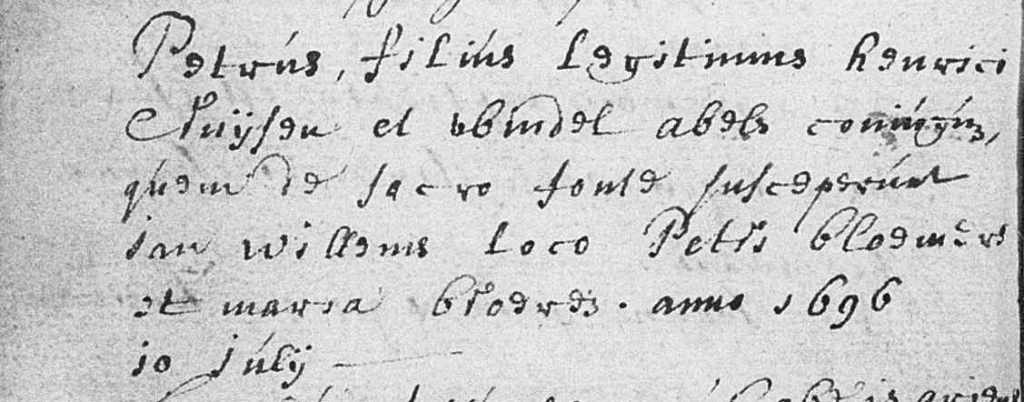 Petrus, filius legitimus henrici
Cluijsen et abels coniugum,
quem de sacro fonte susceperunt
ian willems loco Petri bloemers
et maria anno 1696
10 july